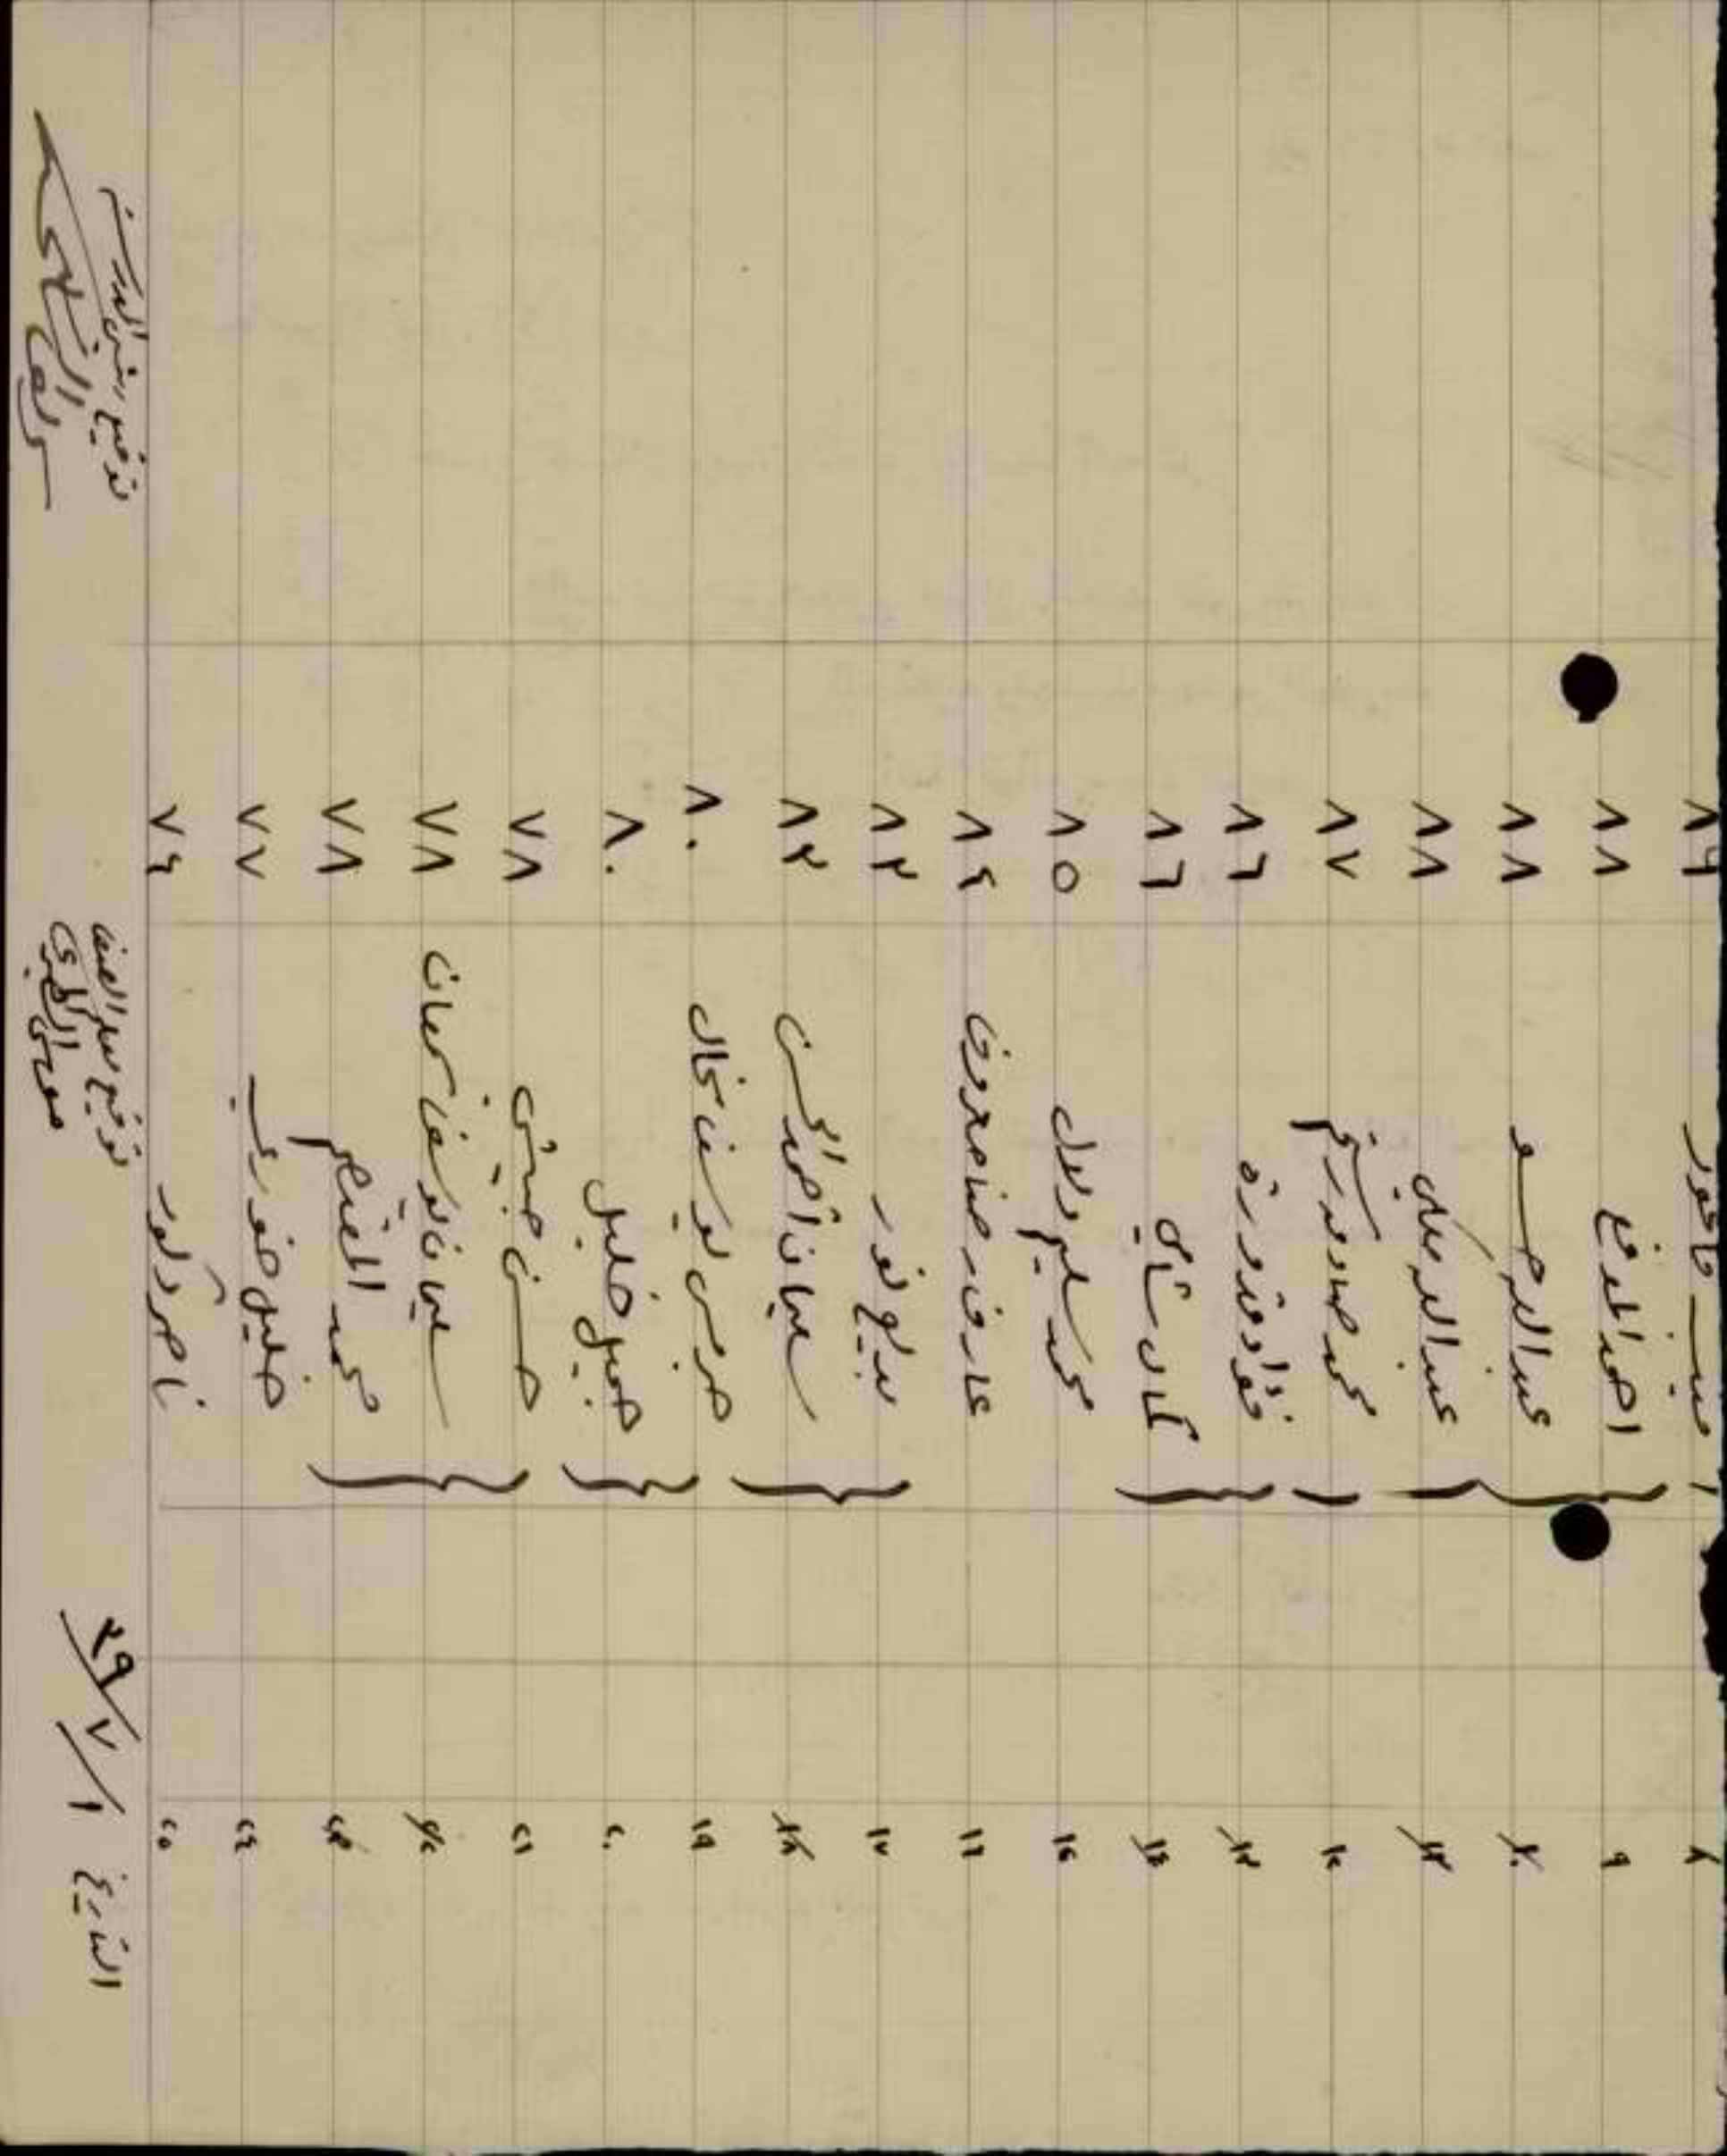 ٨ امين فاعور ٨٩
٩ احمد المدفع ٨٨
١٠ عبد الله حسو ٨٨
١٣ عبد الله مكي ٨٨
١٥ محمد صادق رستم ٨٧
١٣ فؤاد قدورة ٨٦
١٤ كمال شامي ٨٦
١٥ محمد سليم دلال ٨٥
١٦ عارف رضا معروف ٨٤
١٧ بديع نور ٨٣
١٨ سليمان احمد الحسن ٨٣
١٩ جرجس يوسف نخال ٨٠
٢٠ جميل خليل ٨٠
٢١ حسن حبيشي ٧٨
٢٢ سليمان يوسف سمعان ٧٨
٢٣ محمد القيم ٧٨
٢٤ خليل خوري ٧٧
٢٥ ناصر دكور ٧٤
التاريخ ١ / ٧ / ٣٩ توقيع معلم الصف توقيع رئيس المدرسة
موسى الخوري